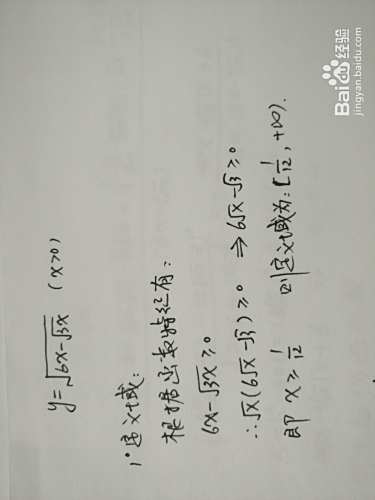 y=√(6x-√(3x)) (x>0)
1°定义域:
根据函数特征有:
6x-√(3x)≥0
∴√x(6√x-√3)≥0 ⇒6√x-√3≥0
即 x≥1/12 则定义域为:[1/12,+∞).
Baidu经验
jingyan.baidu.com